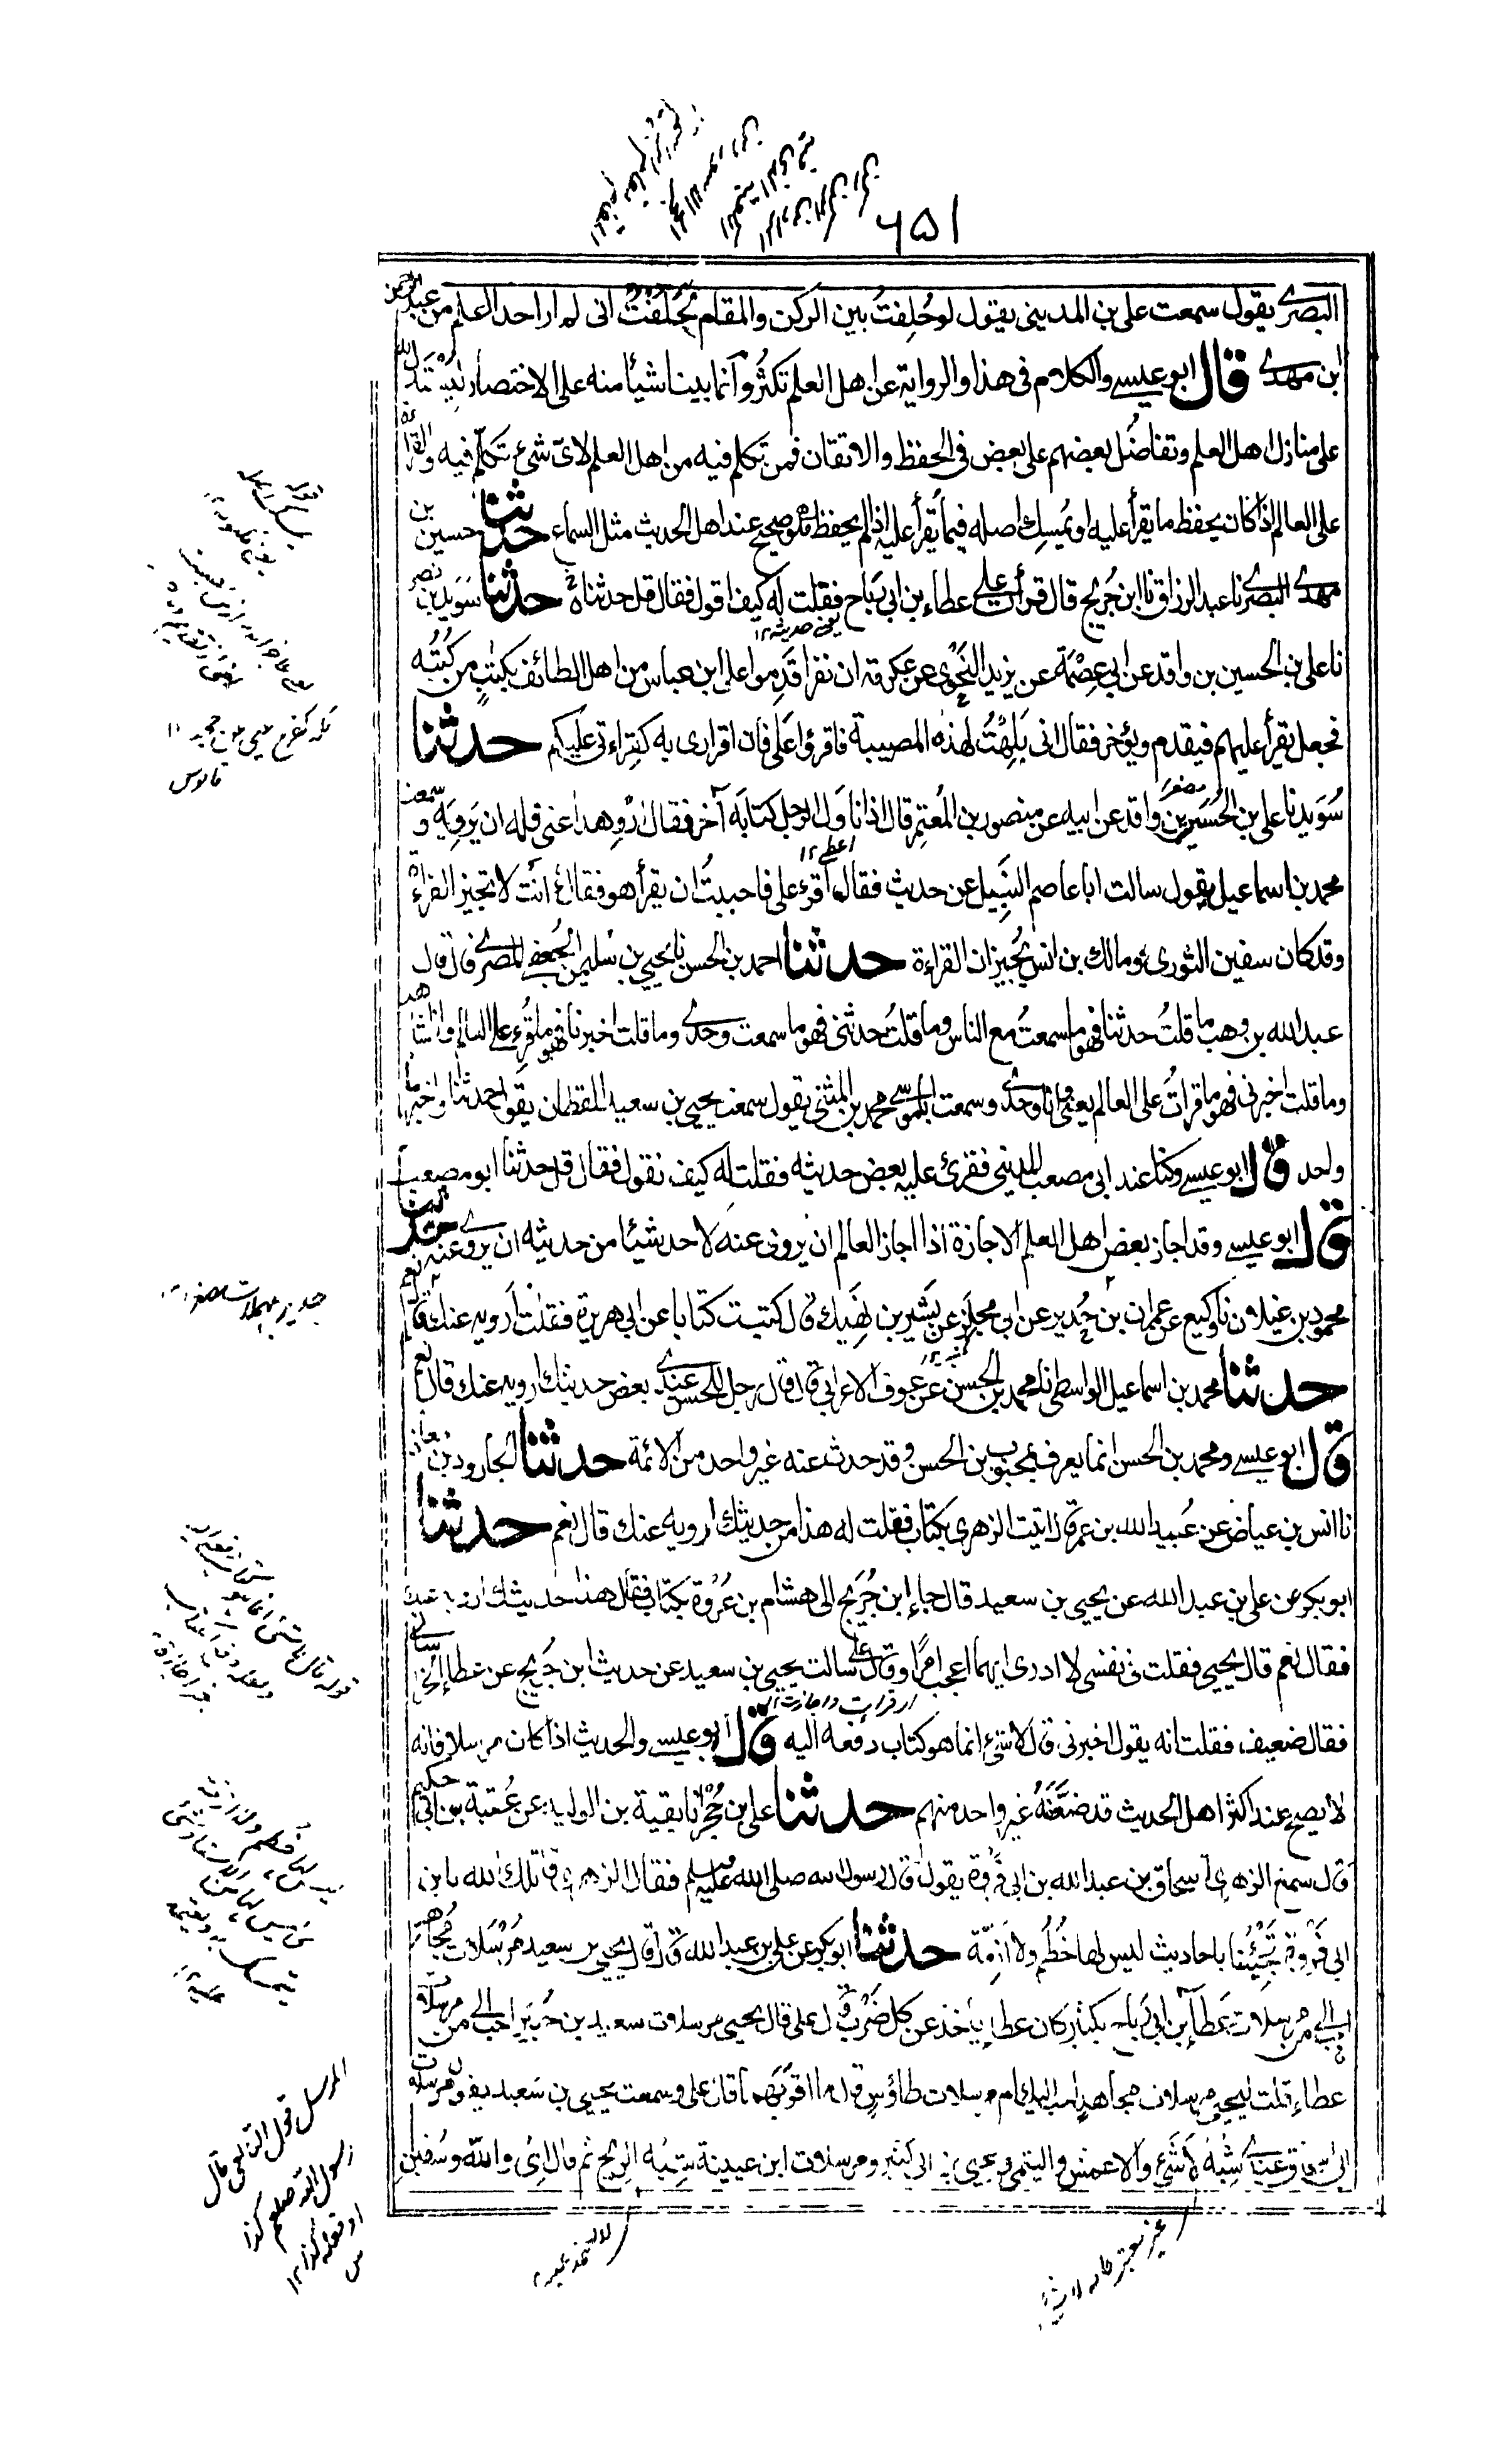 ٦٥١
البصرى يقول سمعت على بن المدينى يقول لو حُلِفتُ بين الركن والمقام لحَلَفتُ انى لم ار احد اعلم من عبد الرحمن
ابن مهدى قال ابو عيسى والكلام فى هذا والرواية عن اهل العلم تكثر وانما بينا شيأ منه على الاختصار ليستدل به
على منازل اهل العلم وتفاضُل بعضهم على بعض فى الحفظ والاتقان فمن تكلم فيه من اهل العلم لاى شئ تكلم فيه والقراءة
على العالم اذا كان يحفظ ما يقرأ عليه او يُمسِك اصله فيما يقرأ عليه اذا لم يحفظ هو صحيح عند اهل الحديث مثل السماع حدثنا حسين بن
مهدى البصرى نا عبد الرزاق نا ابن جُريج قال قرأت على عطاء بن ابى رَباح فقلت له كيف اقول فقال قل حدثنا حدثنا سُوَيد بن نصر
نا على بن الحسين بن واقد عن ابى عِصْمَة عن يزيد النَحْوى عن عكرمة ان نفرا قَدِموا على ابن عباس من اهل الطائف بكتابٍ من كُتُبه
فجعل يقرأ عليهم فيقدم ويؤخر فقال انى بَلِهْتُ لهذه المصيبة فاقرؤا عَلَى فان اقرارى به كقراءتى عليكم حدثنا
سُوَيد نا على بن الحُسَين بن واقد عن ابيه عن منصور بن المُعتمِر قال اذا ناول الرجل كتابَه آخر فقال ارْوِ هذا عنى فله ان يَروِيَه وسمعت
محمد بن اسماعيل يقول سالت ابا عاصم النَبِيل عن حديث فقال اقرء على فاحببتُ ان يقرأ هو فقال أ انت لا تجيز القراءة
وقد كان سفين الثورى ومالك بن انس يُجيزان القراءة حدثنا احمد بن الحسن نا يحيى بن سُليمن الجُعفى المصرى قال قال
عبد الله بن وهب ما قلتُ حدثنا فهو ما سمعتُ مع الناس وما قلتُ حدثنى فهو ما سمعت وحدى وما قلت اخبرنا فهو ما قُرِء على العالم وانا شاهد
وما قلت اخبرنى فهو ما قرات على العالم يعنى وانا وحدى وسمعت ابا موسى محمد بن المثنى يقول سمعت يحيى بن سعيد القطان يقول حدثنا واخبرنا
واحد قال ابو عيسى وكنا عند ابى مصعب المدينى فقرئ عليه بعض حديثه فقلت له كيف نقول فقال قل حدثنا ابو مصعب
قال ابو عيسى وقد اجاز بعض اهل العلم الاجازة اذا اجاز العالم ان يروى عنه لاحد شيأ من حديثه ان يروى عنه حدثنا
محمود بن غيلان نا وكيع عن عمران بن حُدير عن ابى مجلز عن بَشير بن نَهيك قال كتبت كتابا عن ابى هريرة فقلت اَرويه عنك قال نعم
حدثنا محمد بن اسماعيل الواسطى نا محمد بن الحسن عن عَوف الاعرابى قال قال رجل للحسن عندى بعض حديثك ارويه عنك قال نعم
قال ابو عيسى ومحمد بن الحسن انما يعرف بمحبوب بن الحسن وقد حدث عنه غير واحد من الائمة حدثنا الجارود بن معاذ
نا انس بن عياض عن عُبيد الله بن عمر قال اتيت الزهرى بكتاب فقلت له هذا من حديثك ارويه عنك قال نعم حدثنا
ابو بكر عن على بن عبد الله عن يحيى بن سعيد قال جاء ابن جُريج الى هشام بن عُرْوة بكتاب فقال هذا حديثك ارويه عنك
فقال نعم قال يحيى فقلت فى نفسى لا ادرى ايهما اعجب امرًا وقال على سالت يحيى بن سعيد عن حديث ابن جُريج عن عطاء الخراسانى
فقال ضعيف فقلت انه يقول اخبرنى قال لا شئ انما هو كتاب دفعه اليه قال ابو عيسى والحديث اذا كان مرسلا فانه
لا يصح عند اكثر اهل الحديث قد ضَعَّفَهُ غير واحد منهم حدثنا على بن حُجْر انا بقية بن الوليد عن عُتبة بن ابى حكيم
قال سمع الزهرى اسحاق بن عبد الله بن ابى فَرْوة يقول قال رسول الله صلى الله عليه وسلم فقال الزهرى قاتلك الله يا ابن
ابى فَرْوة تَجِيْئُنا باحاديث ليس لها خُطُم ولا ازمّة حدثنا ابو بكر عن على بن عبد الله قال قال يحيى بن سعيد مُرْسَلات مُجاهد
احب الى من مرسلات عطاء بن ابى رَباح بكثير كان عطاء يأخذ عن كل ضَرْب قال على قال يحيى مرسلات سعيد بن جُبَير احب الى من مرسلات
عطاء قلت ليحيى مرسلات مجاهد احب اليك ام مرسلات طاؤس قال ما اقربهما قال على وسمعت يحيى بن سعيد يقول مرسلات
ابى اسحاق عندى شِبْهُ لَا شَئ والاعمش والتيمى ويحيى بن ابى كثير ومرسلات ابن عيينة شِبْه الريح ثم قال اى والله وسُفين
يعنى حديثه ١٢
مصغرا
اعطى ١٢
قاموس
المرسل قول التابعى قال
رسول الله صلعم كذا
او فعل كذا ١٢